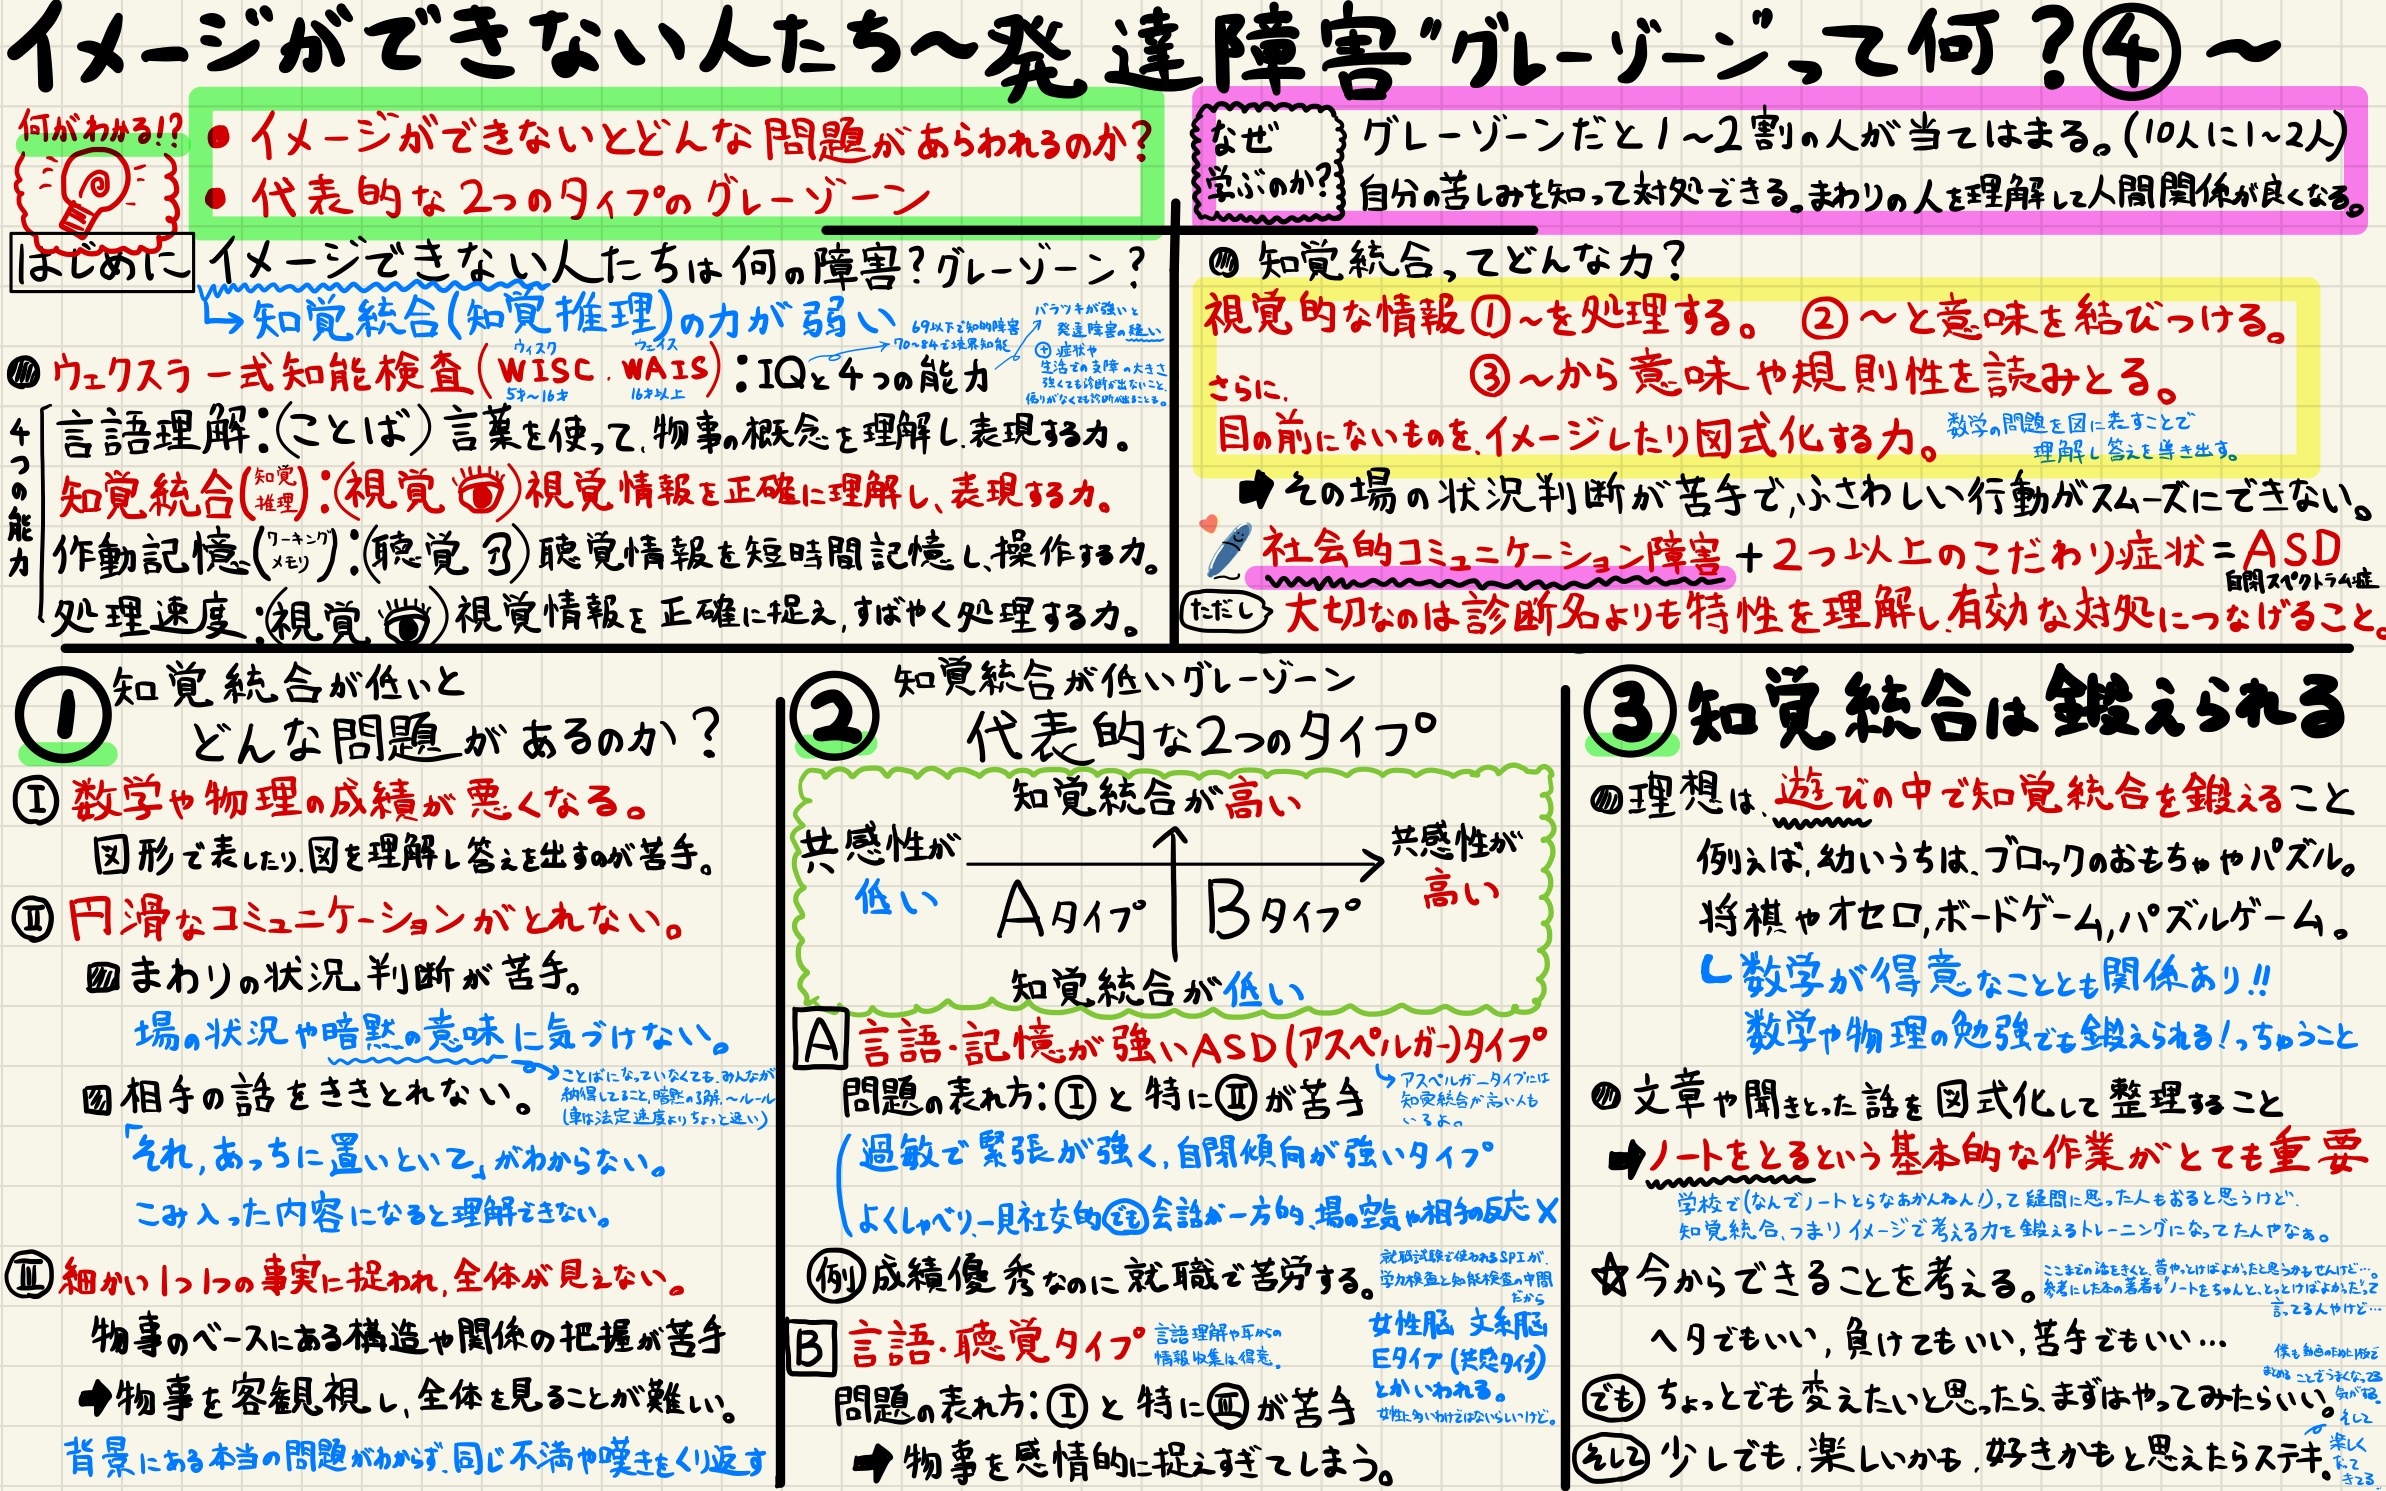 イメージができない人たち〜発達障害"グレーゾーン"って何？④〜
何がわかる!?
● イメージができないとどんな問題があらわれるのか？
● 代表的な2つのタイプのグレーゾーン
なぜ
学ぶのか？
グレーゾーンだと1〜2割の人が当てはまる。(10人に1〜2人)
自分の苦しみを知って対処できる。まわりの人を理解して人間関係が良くなる。
はじめに イメージできない人たちは何の障害？グレーゾーン？
→知覚統合(知覚推理)の力が弱い
69以下で知的障害
70〜84で境界知能
バラツキが強いと
発達障害の疑い
⊕ 症状や
生活での支障の大きさ
強くても診断が出ないこと、
偏りがなくても診断が出ることも。
ウェクスラー式知能検査(WISC. WAIS)：IQと4つの能力
ウィスク ウェイス
5才〜16才 16才以上
4つの能力
言語理解：(ことば) 言葉を使って、物事の概念を理解し、表現する力。
知覚統合(知覚推理)：(視覚) 視覚情報を正確に理解し、表現する力。
作動記憶(ワーキングメモリ)：(聴覚) 聴覚情報を短時間記憶し、操作する力。
処理速度：(視覚) 視覚情報を正確に捉え、すばやく処理する力。
知覚統合ってどんな力？
視覚的な情報①〜を処理する。 ②〜と意味を結びつける。
③〜から意味や規則性を読みとる。
さらに、
目の前にないものを、イメージしたり図式化する力。
数学の問題を図に表すことで
理解し答えを導き出す。
➡その場の状況判断が苦手で、ふさわしい行動がスムーズにできない。
社会的コミュニケーション障害＋2つ以上のこだわり症状＝ASD
自閉スペクトラム症
ただし 大切なのは診断名よりも特性を理解し、有効な対処につなげること。
① 知覚統合が低いと
どんな問題があるのか？
Ⅰ 数学や物理の成績が悪くなる。
図形で表したり、図を理解し答えを出すのが苦手。
Ⅱ 円滑なコミュニケーションがとれない。
まわりの状況判断が苦手。
場の状況や暗黙の意味に気づけない。
→ことばになっていなくても、みんなが
納得してること、暗黙の了解、〜ルール
(車は法定速度よりちょっと速い)
相手の話をききとれない。
「それ、あっちに置いといて」がわからない。
こみ入った内容になると理解できない。
Ⅲ 細かい1つ1つの事実に捉われ、全体が見えない。
物事のベースにある構造や関係の把握が苦手
➡物事を客観視し、全体を見ることが難しい。
背景にある本当の問題がわからず、同じ不満や嘆きをくり返す
② 知覚統合が低いグレーゾーン
代表的な2つのタイプ
知覚統合が高い
共感性が
低い
共感性が
高い
Aタイプ Bタイプ
知覚統合が低い
A 言語・記憶が強いASD(アスペルガー)タイプ
問題の表れ方：Ⅰと特にⅡが苦手
→アスペルガータイプには
知覚統合が高い人も
いるよ。
過敏で緊張が強く、自閉傾向が強いタイプ
よくしゃべり、一見社交的でも会話が一方的、場の空気や相手の反応×
例 成績優秀なのに就職で苦労する。
就職試験で使われるSPIが、
学力検査と知能検査の中間
だから
B 言語・聴覚タイプ
言語理解や耳からの
情報収集は得意。
女性脳 文系脳
Eタイプ(共感タイプ)
とかいわれる。
女性に多いわけではないらしいけど。
問題の表れ方：Ⅰと特にⅢが苦手
➡物事を感情的に捉えすぎてしまう。
③ 知覚統合は鍛えられる
理想は、遊びの中で知覚統合を鍛えること
例えば、幼いうちは、ブロックのおもちゃやパズル。
将棋やオセロ,ボードゲーム,パズルゲーム。
数学が得意なこととも関係あり!!
数学や物理の勉強でも鍛えられる!っちゅうこと
文章や聞きとった話を図式化して整理すること
➡ノートをとるという基本的な作業がとても重要
学校で(なんでノートとらなあかんねん!)って疑問に思った人もおると思うけど、
知覚統合、つまりイメージで考える力を鍛えるトレーニングになってたんやなぁ。
☆今からできることを考える。
ここまでの話をきくと、昔やっとけばよかったと思うかもせんけど…。
参考にした本の著者も"ノートをちゃんと、とっとけばよかった"って
言ってるんやけど…
ヘタでもいい、負けてもいい、苦手でもいい…
でも ちょっとでも変えたいと思ったら、まずはやってみたらいい。
そして 少しでも、楽しいかも、好きかもと思えたらステキ。
まとめることでうまくなってる
気がする。
そして
楽しく
なって
きてる